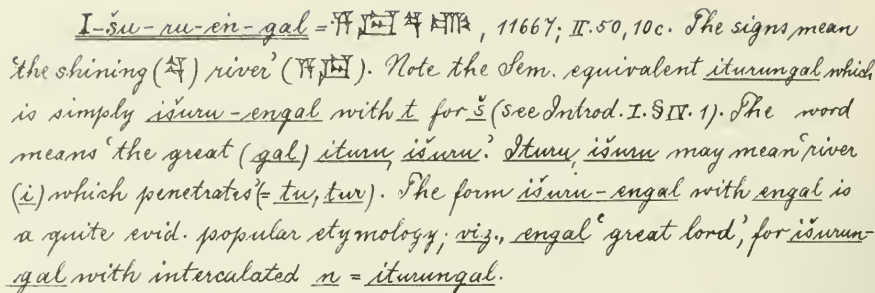 I-šu-ru-en-gal = 𒀀𒇉 , 11667; II. 50, 10c. The signs mean
'the shining () river' (𒀀𒇉). Note the Sem. equivalent iturungal which
is simply išuru-engal with t for š (see Introd. I. § IV. 1). The word
means 'the great (gal) ituru, išuru.' Ituru, išuru may mean 'river
(i) which penetrates' (= tu, tur). The form išuru-engal with engal is
a quite evid. popular etymology; viz., engal 'great lord', for išurun-
gal with intercalated n = iturungal.